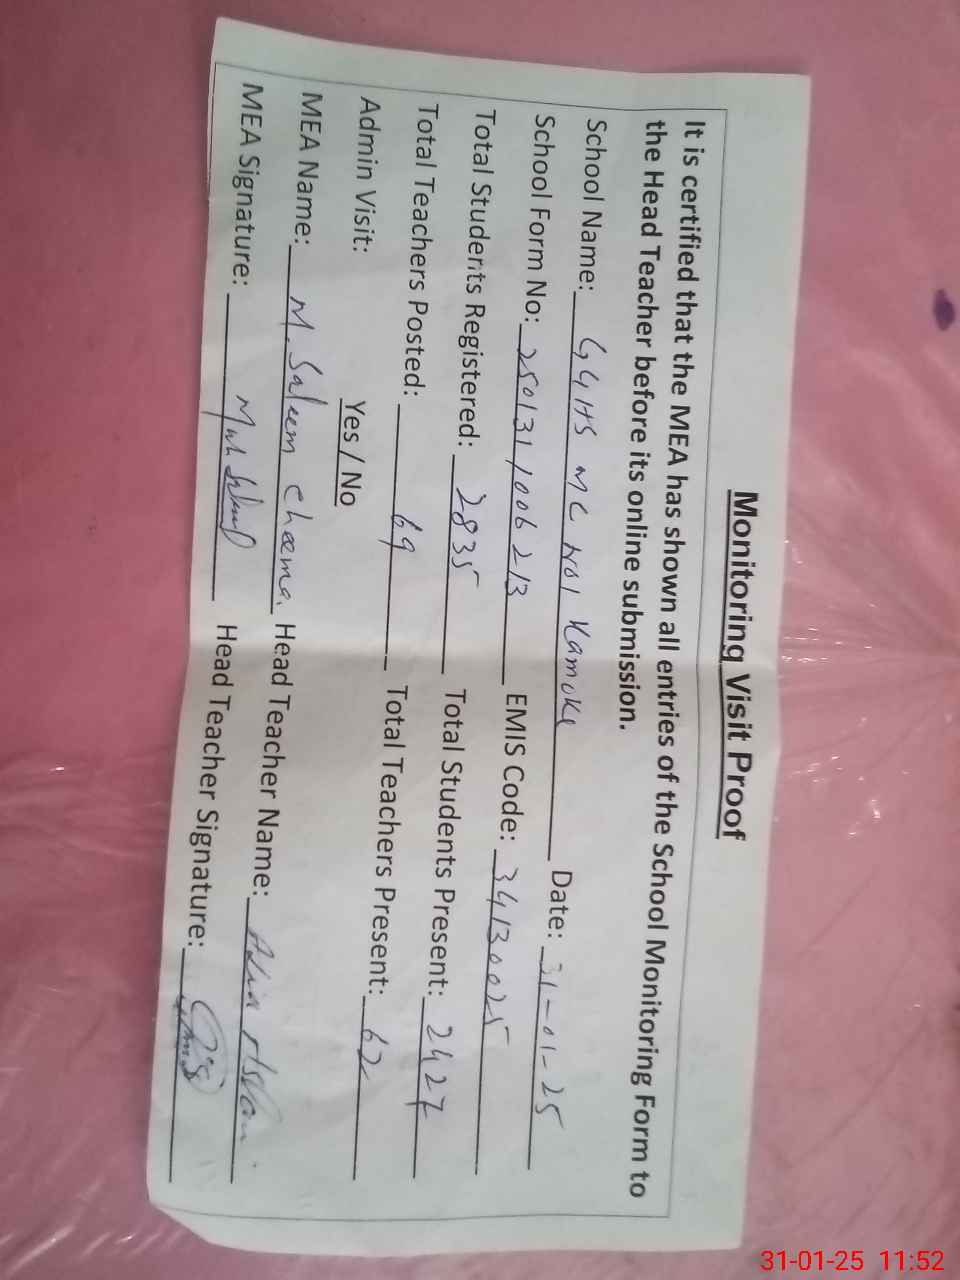 Monitoring Visit Proof
It is certified that the MEA has shown all entries of the School Monitoring Form to
the Head Teacher before its online submission.
School Name: GGHS MC No1 Kamoke Date: 31-01-25
School Form No: 250131/006213 EMIS Code: 34130025
Total Students Registered: 2835 Total Students Present: 2427
Total Teachers Posted: 69 Total Teachers Present: 62
Admin Visit: Yes / No
MEA Name: M. Saleem Cheema. Head Teacher Name:
MEA Signature: Head Teacher Signature:
31-01-25 11:52